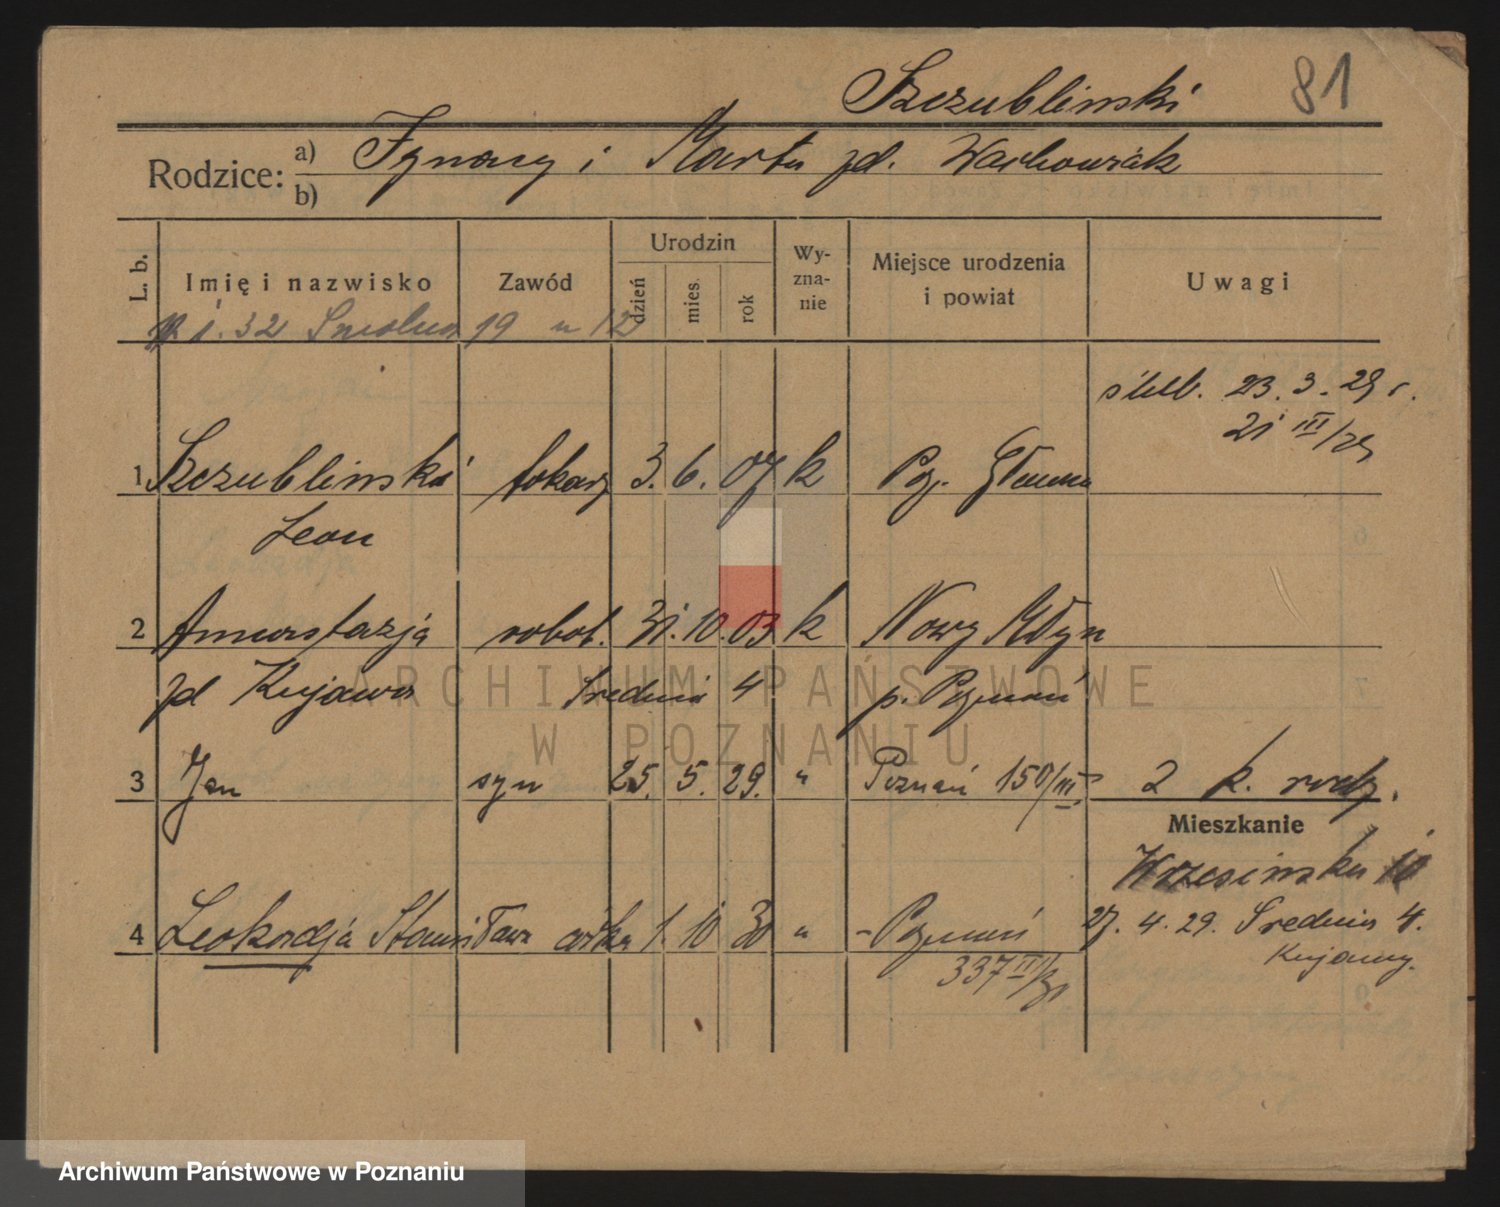 Szczublinski 81
Rodzice: a) Ignacy i Marta zd. Wachowiak
b)
L. b. Imię i nazwisko Zawód Urodzin dzień mies. rok Wyznanie Miejsce urodzenia i powiat Uwagi
1. 32 19 m 12
ślub. 23. 3. 29 r.
21 III/29
1 Szczublinski tokarz 3. 6. 07 k Pozn. Główna
Leon
2 Anastazja robot. 31. 10. 03 k Nowy Młyn
zd Kujawa Srednia 4 p. Poznań
3 Jan syn 25. 5. 29. " Poznań 150/III. 2 k. rodz.
Mieszkanie
Wrzesinska 10
4 Leokadja Stanisława córka 1. 10 30 " - Poznań 27. 4. 29. Srednia 4.
337 II/30 Kujawy.
ARCHIWUM PAŃSTWOWE
W POZNANIU
Archiwum Państwowe w Poznaniu